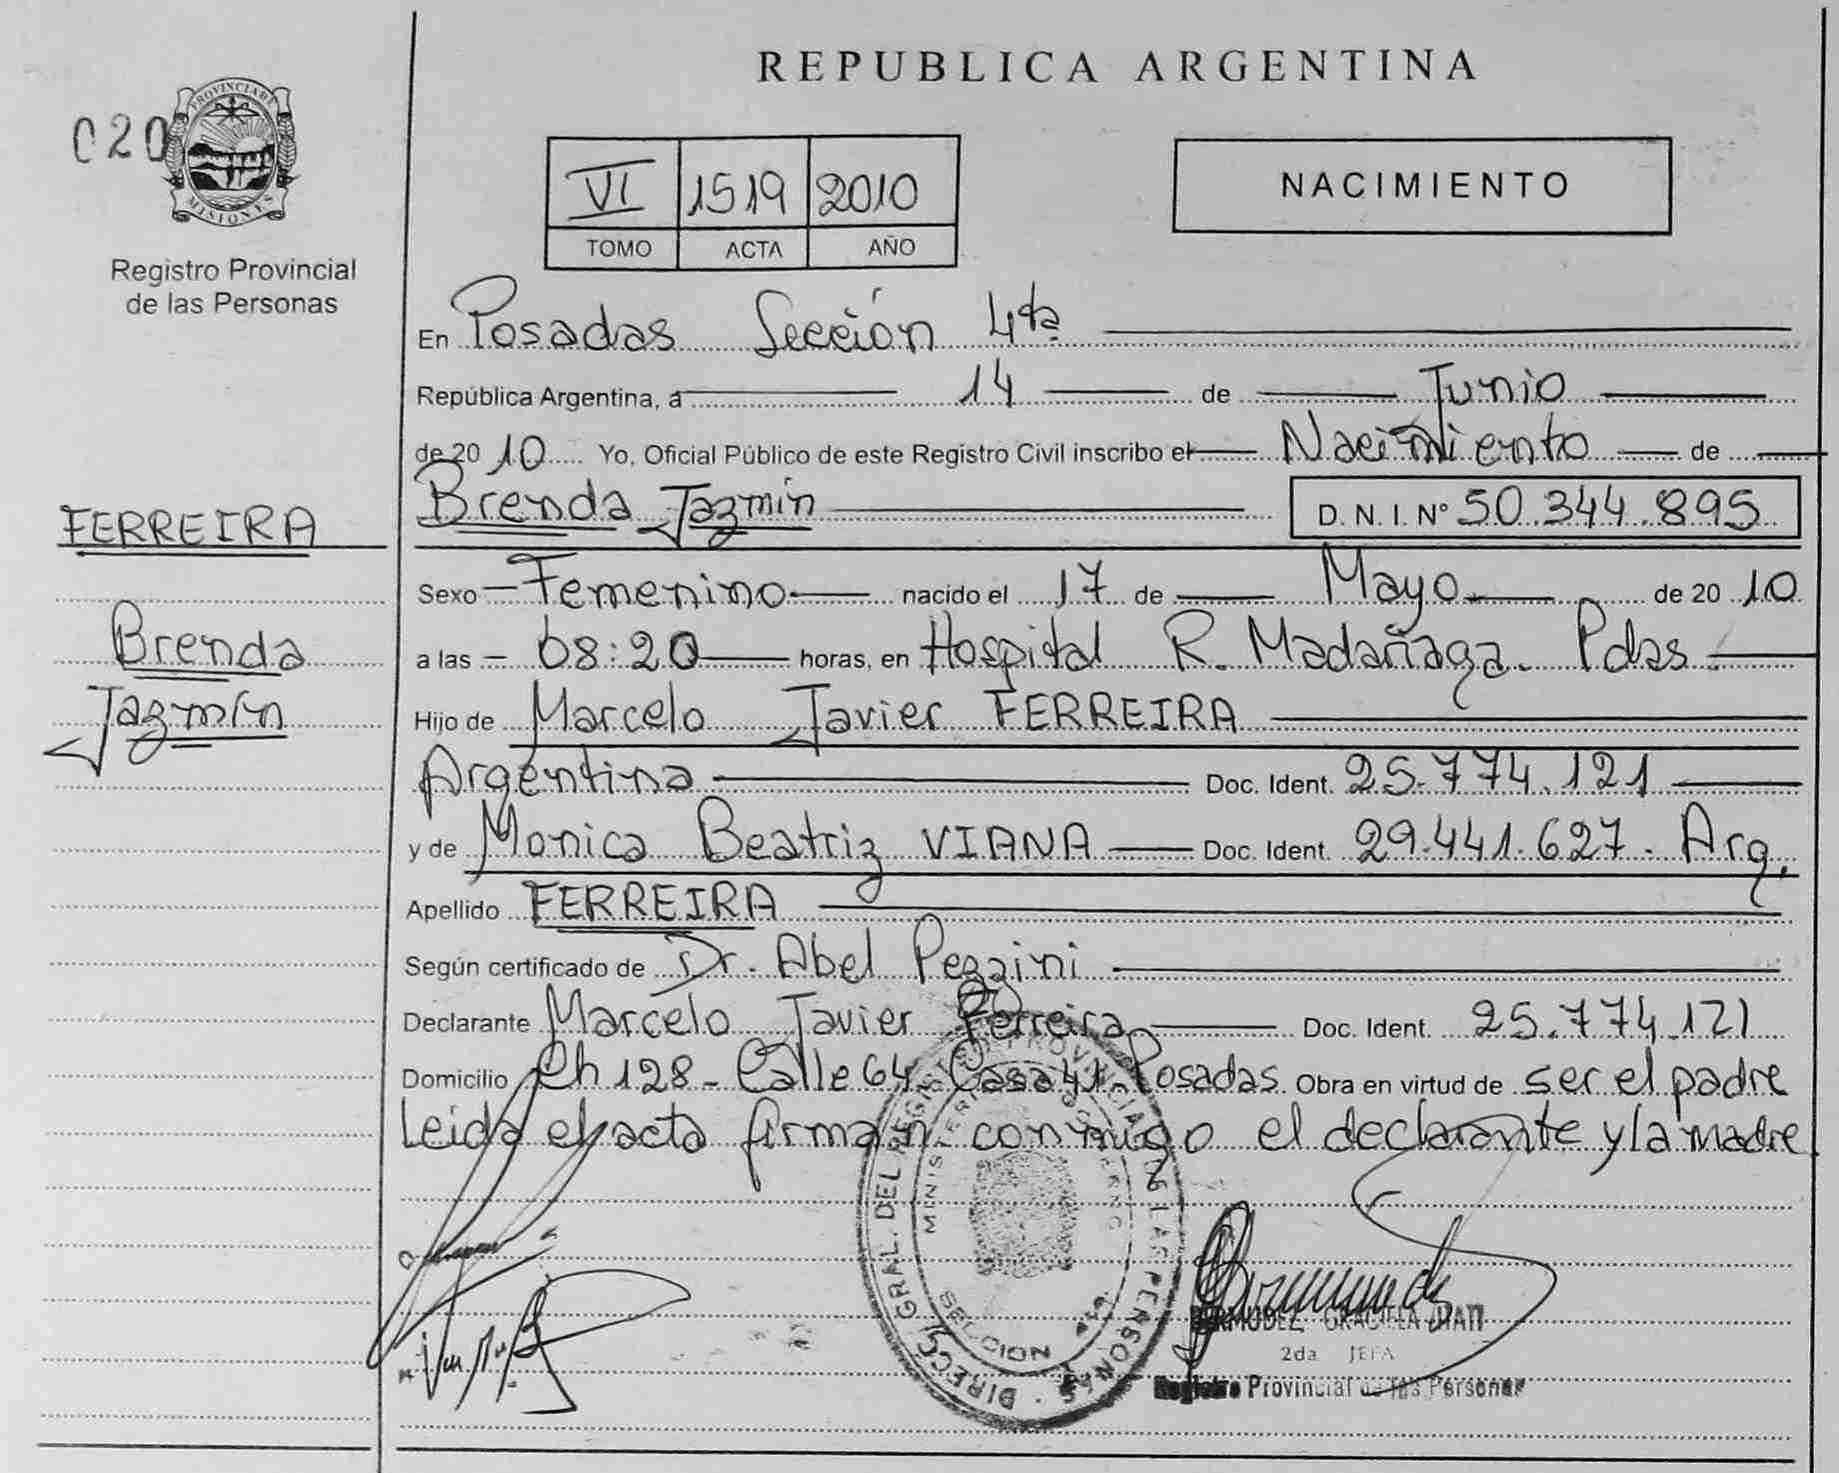 REPUBLICA ARGENTINA
020
PROVINCIA DE
MISIONES
Registro Provincial
de las Personas
VI 1519 2010
TOMO ACTA AÑO
NACIMIENTO
En Posadas Sección 4ta
República Argentina, a 14 de Junio
de 20 10 Yo, Oficial Público de este Registro Civil inscribo el Nacimiento de
Brenda Jazmín D. N. I. Nº 50.344.895
FERREIRA
Brenda
Jazmín
Sexo Femenino nacido el 17 de Mayo de 20 10
a las 08:20 horas, en Hospital R. Madariaga. Pdas
Hijo de Marcelo Javier FERREIRA
Argentina Doc. Ident. 25.774.121
y de Monica Beatriz VIANA Doc. Ident. 29.441.627. Arg.
Apellido FERREIRA
Según certificado de Dr. Abel Pezzini
Declarante Marcelo Javier Ferreira Doc. Ident. 25.774.121
Domicilio Ch 128 - Calle 64 - Casa 41 - Posadas Obra en virtud de ser el padre
Leida el acta firman conmigo el declarante y la madre
BERMUDEZ GRACIELA
2da JEFA
Registro Provincial de las Personas